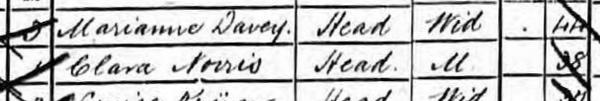 3 Marianne Davey. Head Wid 44
Clara Norris Head. M. 38
Head Wid